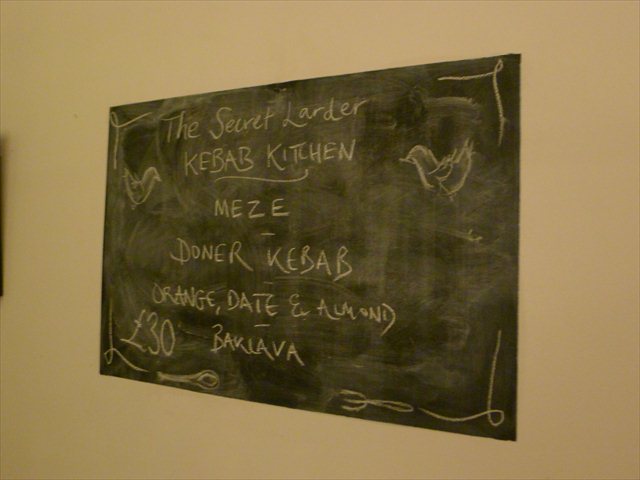 The Secret Larder
KEBAB KITCHEN
MEZE
-
DONER KEBAB
-
ORANGE, DATE & ALMOND
-
£30
BAKLAVA